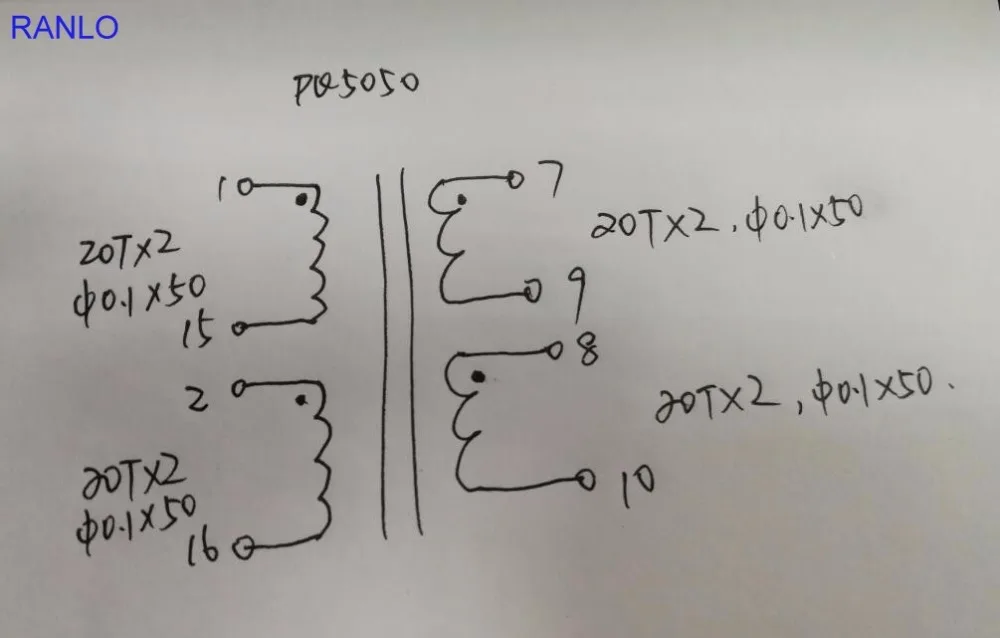 RANLO
PQ5050
1
7
20TX2
Φ0.1X50
20TX2, Φ0.1X50
15
9
2
8
20TX2
Φ0.1X50
20TX2, Φ0.1X50.
16
10